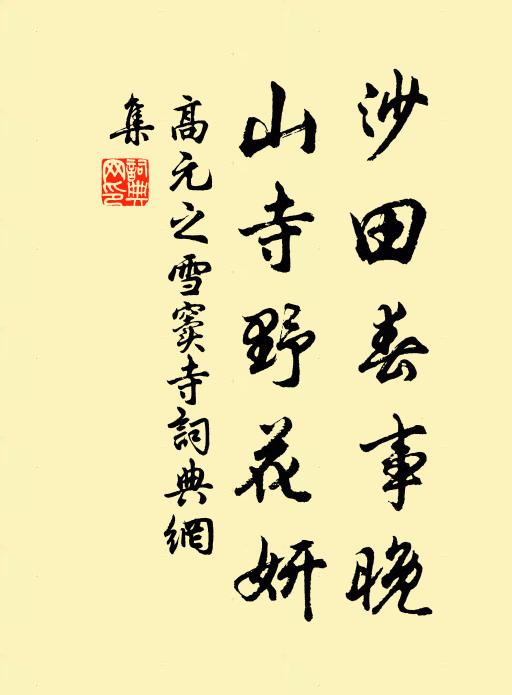 沙田春事晚
山寺野花妍
高元之雪窦寺詞典網
集
詞典網印